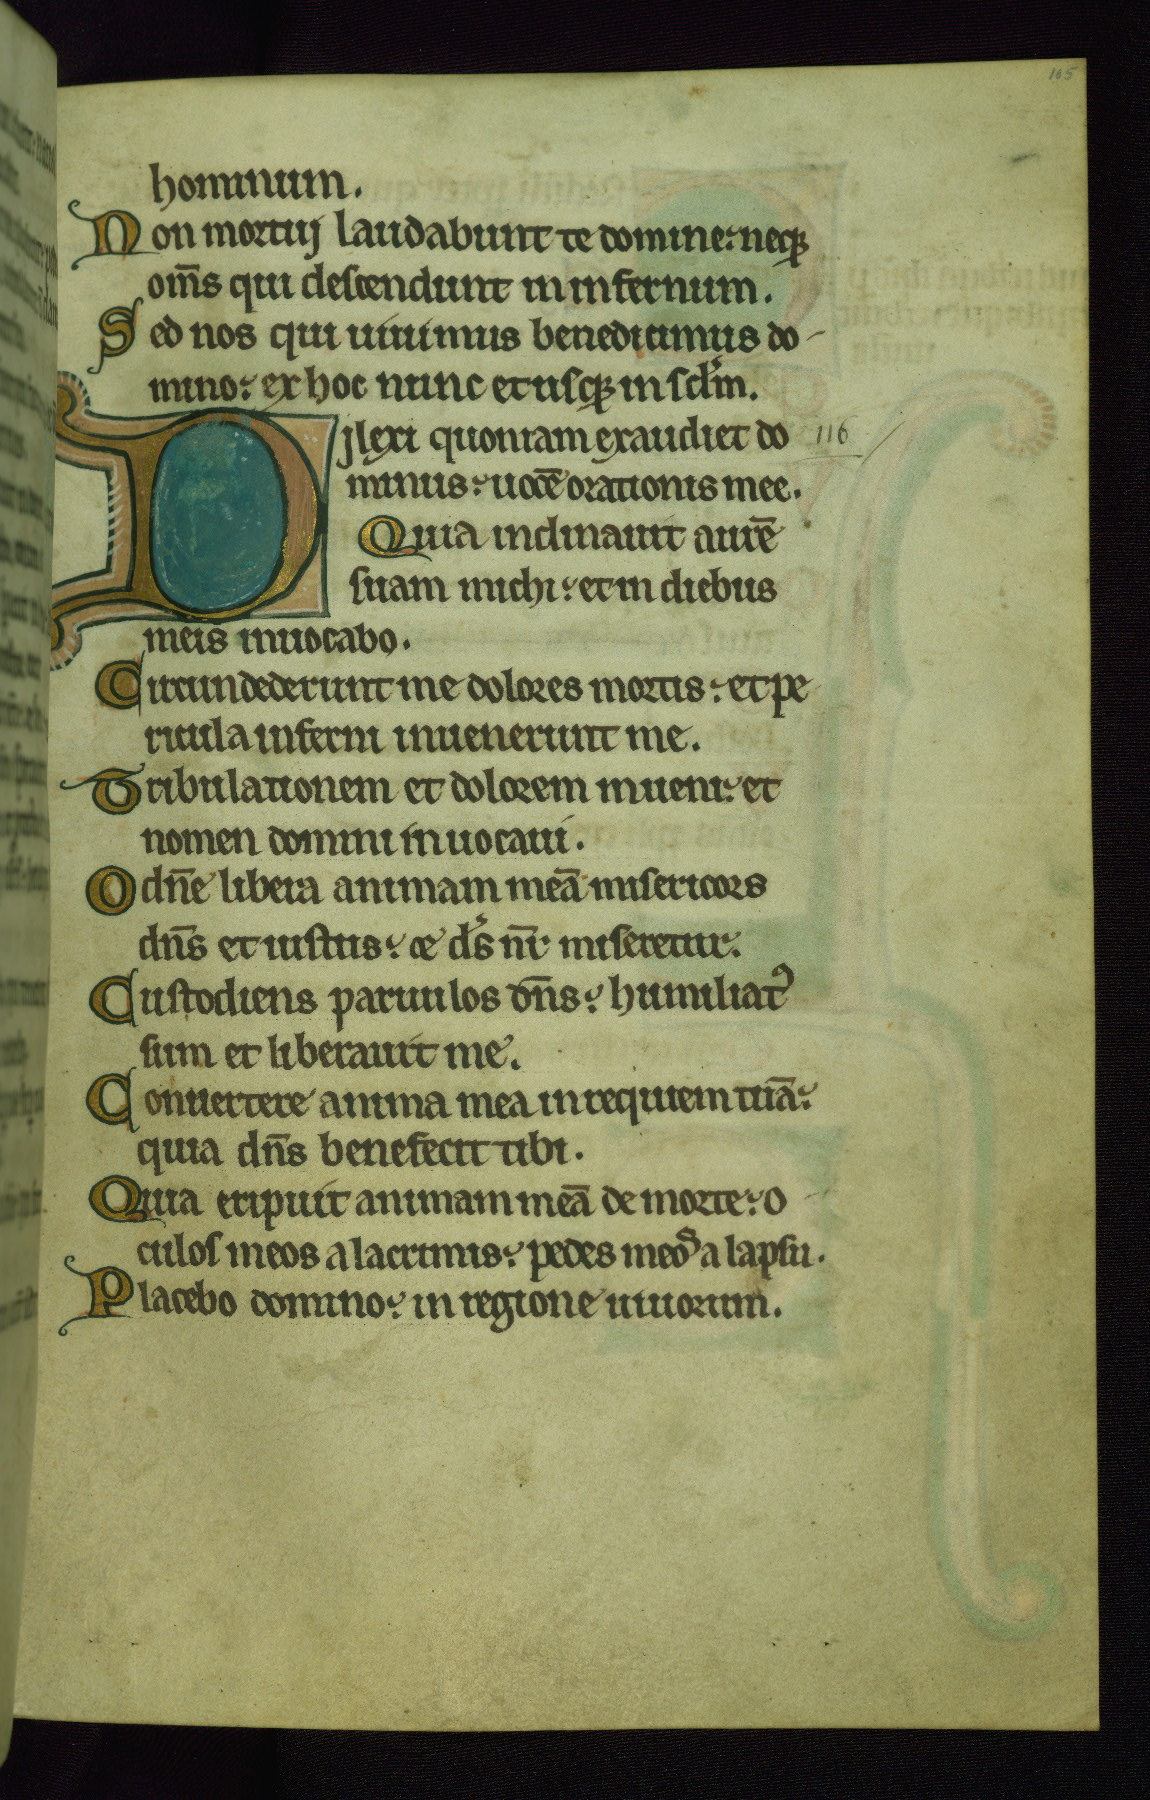 105
hominum.
Non mortuj laudabunt te domine: neqꝫ
om̄s qui descendunt in infernum.
Sed nos qui uiuimus benedicimus do-
mino: ex hoc nunc et usqꝫ in sclm̄.
Djlexi quoniam exaudiet do 116
minus: uocē orationis mee.
Quia inclinauit aurē
suam michi: et in diebus
meis inuocabo.
Circundederunt me dolores mortis: et pe
ricula inferni inuenerunt me.
Tribulationem et dolorem inueni: et
nomen domini inuocaui.
O dn̄e libera animam meā misericors
dn̄s et iustus: & ds̄ nr̄ miseretur.
Custodiens paruulos dn̄s: humiliat᾽
sum et liberauit me.
Conuertere anima mea in requiem tuā:
quia dn̄s benefecit tibi.
Quia eripuit animam meā de morte: o
culos meos a lacrimis: pedes meos a lapsu.
Placebo domino: in regione uiuorum.